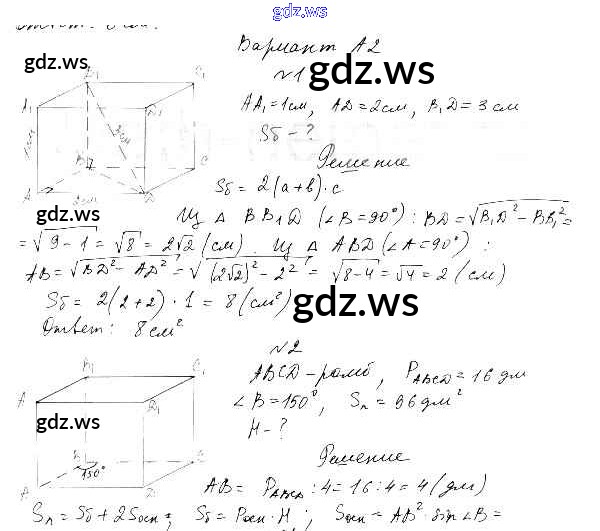 gdz.ws
gdz.ws
Вариант А2
№1
gdz.ws
B₁ C₁
A₁
AA₁ = 1см, AD = 2см, B₁D = 3см
1см 3см
Sб - ?
Решение
B C
A 2см D
Sб = 2(a+b)·c
gdz.ws
Из Δ BB₁D (∠B=90°): BD = √B₁D² - BB₁² =
= √9-1 = √8 = 2√2 (см). Из Δ ABD (∠A=90°):
AB = √BD² - AD² = √(2√2)² - 2² = √8-4 = √4 = 2 (см)
Sб = 2(2+2)·1 = 8 (см²)
gdz.ws
Ответ: 8см².
№2
B₁ C₁
ABCD - ромб, P_ABCD = 16 дм
A D₁
∠B = 150°, Sп = 96дм²
gdz.ws
H - ?
Решение
B C
150°
A D
AB = P_ABCD : 4 = 16 : 4 = 4 (дм)
gdz.ws
Sп = Sб + 2Sосн; Sб = Pосн·H; Sосн = AB²·sin∠B =